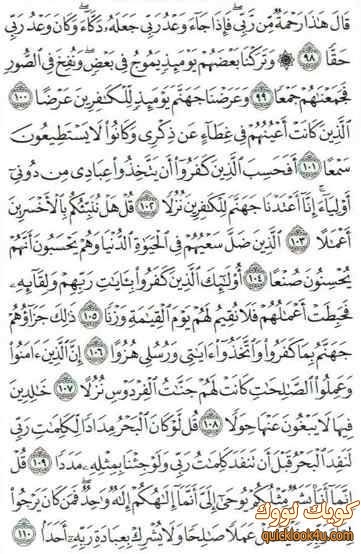 قَالَ هَٰذَا رَحْمَةٌ مِّن رَّبِّي ۖ فَإِذَا جَآءَ وَعْدُ رَبِّي جَعَلَهُۥ دَكَّآءَ ۖ وَكَانَ وَعْدُ رَبِّي
حَقًّا ٩٨ ۞ وَتَرَكْنَا بَعْضَهُمْ يَوْمَئِذٍ يَمُوجُ فِي بَعْضٍ ۖ وَنُفِخَ فِي ٱلصُّورِ
فَجَمَعْنَٰهُمْ جَمْعًا ٩٩ وَعَرَضْنَا جَهَنَّمَ يَوْمَئِذٍ لِّلْكَٰفِرِينَ عَرْضًا ١٠٠
ٱلَّذِينَ كَانَتْ أَعْيُنُهُمْ فِي غِطَآءٍ عَن ذِكْرِي وَكَانُوا۟ لَا يَسْتَطِيعُونَ
سَمْعًا ١٠١ أَفَحَسِبَ ٱلَّذِينَ كَفَرُوٓا۟ أَن يَتَّخِذُوا۟ عِبَادِي مِن دُونِيٓ
أَوْلِيَآءَ ۚ إِنَّآ أَعْتَدْنَا جَهَنَّمَ لِلْكَٰفِرِينَ نُزُلًا ١٠٢ قُلْ هَلْ نُنَبِّئُكُم بِٱلْأَخْسَرِينَ
أَعْمَٰلًا ١٠٣ ٱلَّذِينَ ضَلَّ سَعْيُهُمْ فِي ٱلْحَيَوٰةِ ٱلدُّنْيَا وَهُمْ يَحْسَبُونَ أَنَّهُمْ
يُحْسِنُونَ صُنْعًا ١٠٤ أُو۟لَٰٓئِكَ ٱلَّذِينَ كَفَرُوا۟ بِـَٔايَٰتِ رَبِّهِمْ وَلِقَآئِهِۦ
فَحَبِطَتْ أَعْمَٰلُهُمْ فَلَا نُقِيمُ لَهُمْ يَوْمَ ٱلْقِيَٰمَةِ وَزْنًا ١٠٥ ذَٰلِكَ جَزَآؤُهُمْ
جَهَنَّمُ بِمَا كَفَرُوا۟ وَٱتَّخَذُوٓا۟ ءَايَٰتِي وَرُسُلِي هُزُوًا ١٠٦ إِنَّ ٱلَّذِينَ ءَامَنُوا۟
وَعَمِلُوا۟ ٱلصَّٰلِحَٰتِ كَانَتْ لَهُمْ جَنَّٰتُ ٱلْفِرْدَوْسِ نُزُلًا ١٠٧ خَٰلِدِينَ
فِيهَا لَا يَبْغُونَ عَنْهَا حِوَلًا ١٠٨ قُل لَّوْ كَانَ ٱلْبَحْرُ مِدَادًا لِّكَلِمَٰتِ رَبِّي
لَنَفِدَ ٱلْبَحْرُ قَبْلَ أَن تَنفَدَ كَلِمَٰتُ رَبِّي وَلَوْ جِئْنَا بِمِثْلِهِۦ مَدَدًا ١٠٩ قُلْ
إِنَّمَآ أَنَا۠ بَشَرٌ مِّثْلُكُمْ يُوحَىٰٓ إِلَيَّ أَنَّمَآ إِلَٰهُكُمْ إِلَٰهٌ وَٰحِدٌ ۖ فَمَن كَانَ يَرْجُوا۟
عَمَلًا صَٰلِحًا وَلَا يُشْرِكْ بِعِبَادَةِ رَبِّهِۦٓ أَحَدًۢا ١١٠
كويك لووك
quicklook4u.com